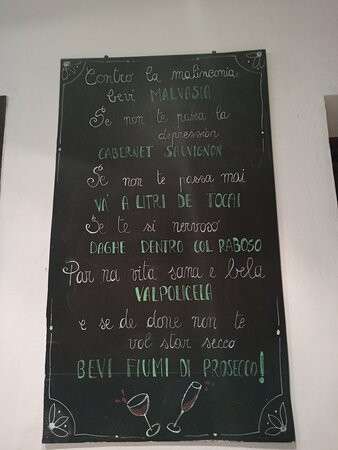 Contro la malinconia
bevi MALVASIA
Se non te passa la
depression
CABERNET SALVIGNON
Se non te passa mai
VA' A LITRI DE TOCAI
Se te si nervoso
DAGHE DENTRO COL RABOSO
Par na vita sana e bela
VALPOLICELA
e se de done non te
vol star secco
BEVI FIUMI DI PROSECCO!